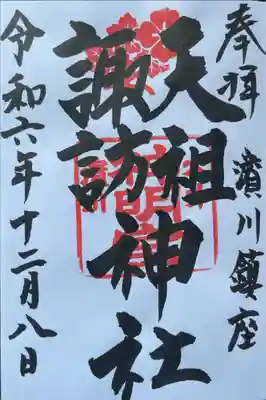 奉拝
濱川鎮座
天祖
諏訪神社
令和六年十二月八日